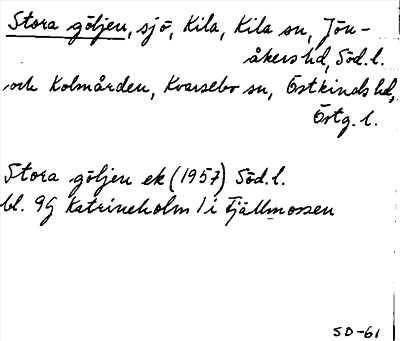 Stora göljen, sjö, Kila, Kila sn, Jön-
åkers hd, Söd. l.
och Kolmården, Kvarsebo sn, Östkinds hd,
Östg. l.
Stora göljen ek (1957) Söd. l.
bl. 9G Katrineholm / i Fjällmossen
SD-61